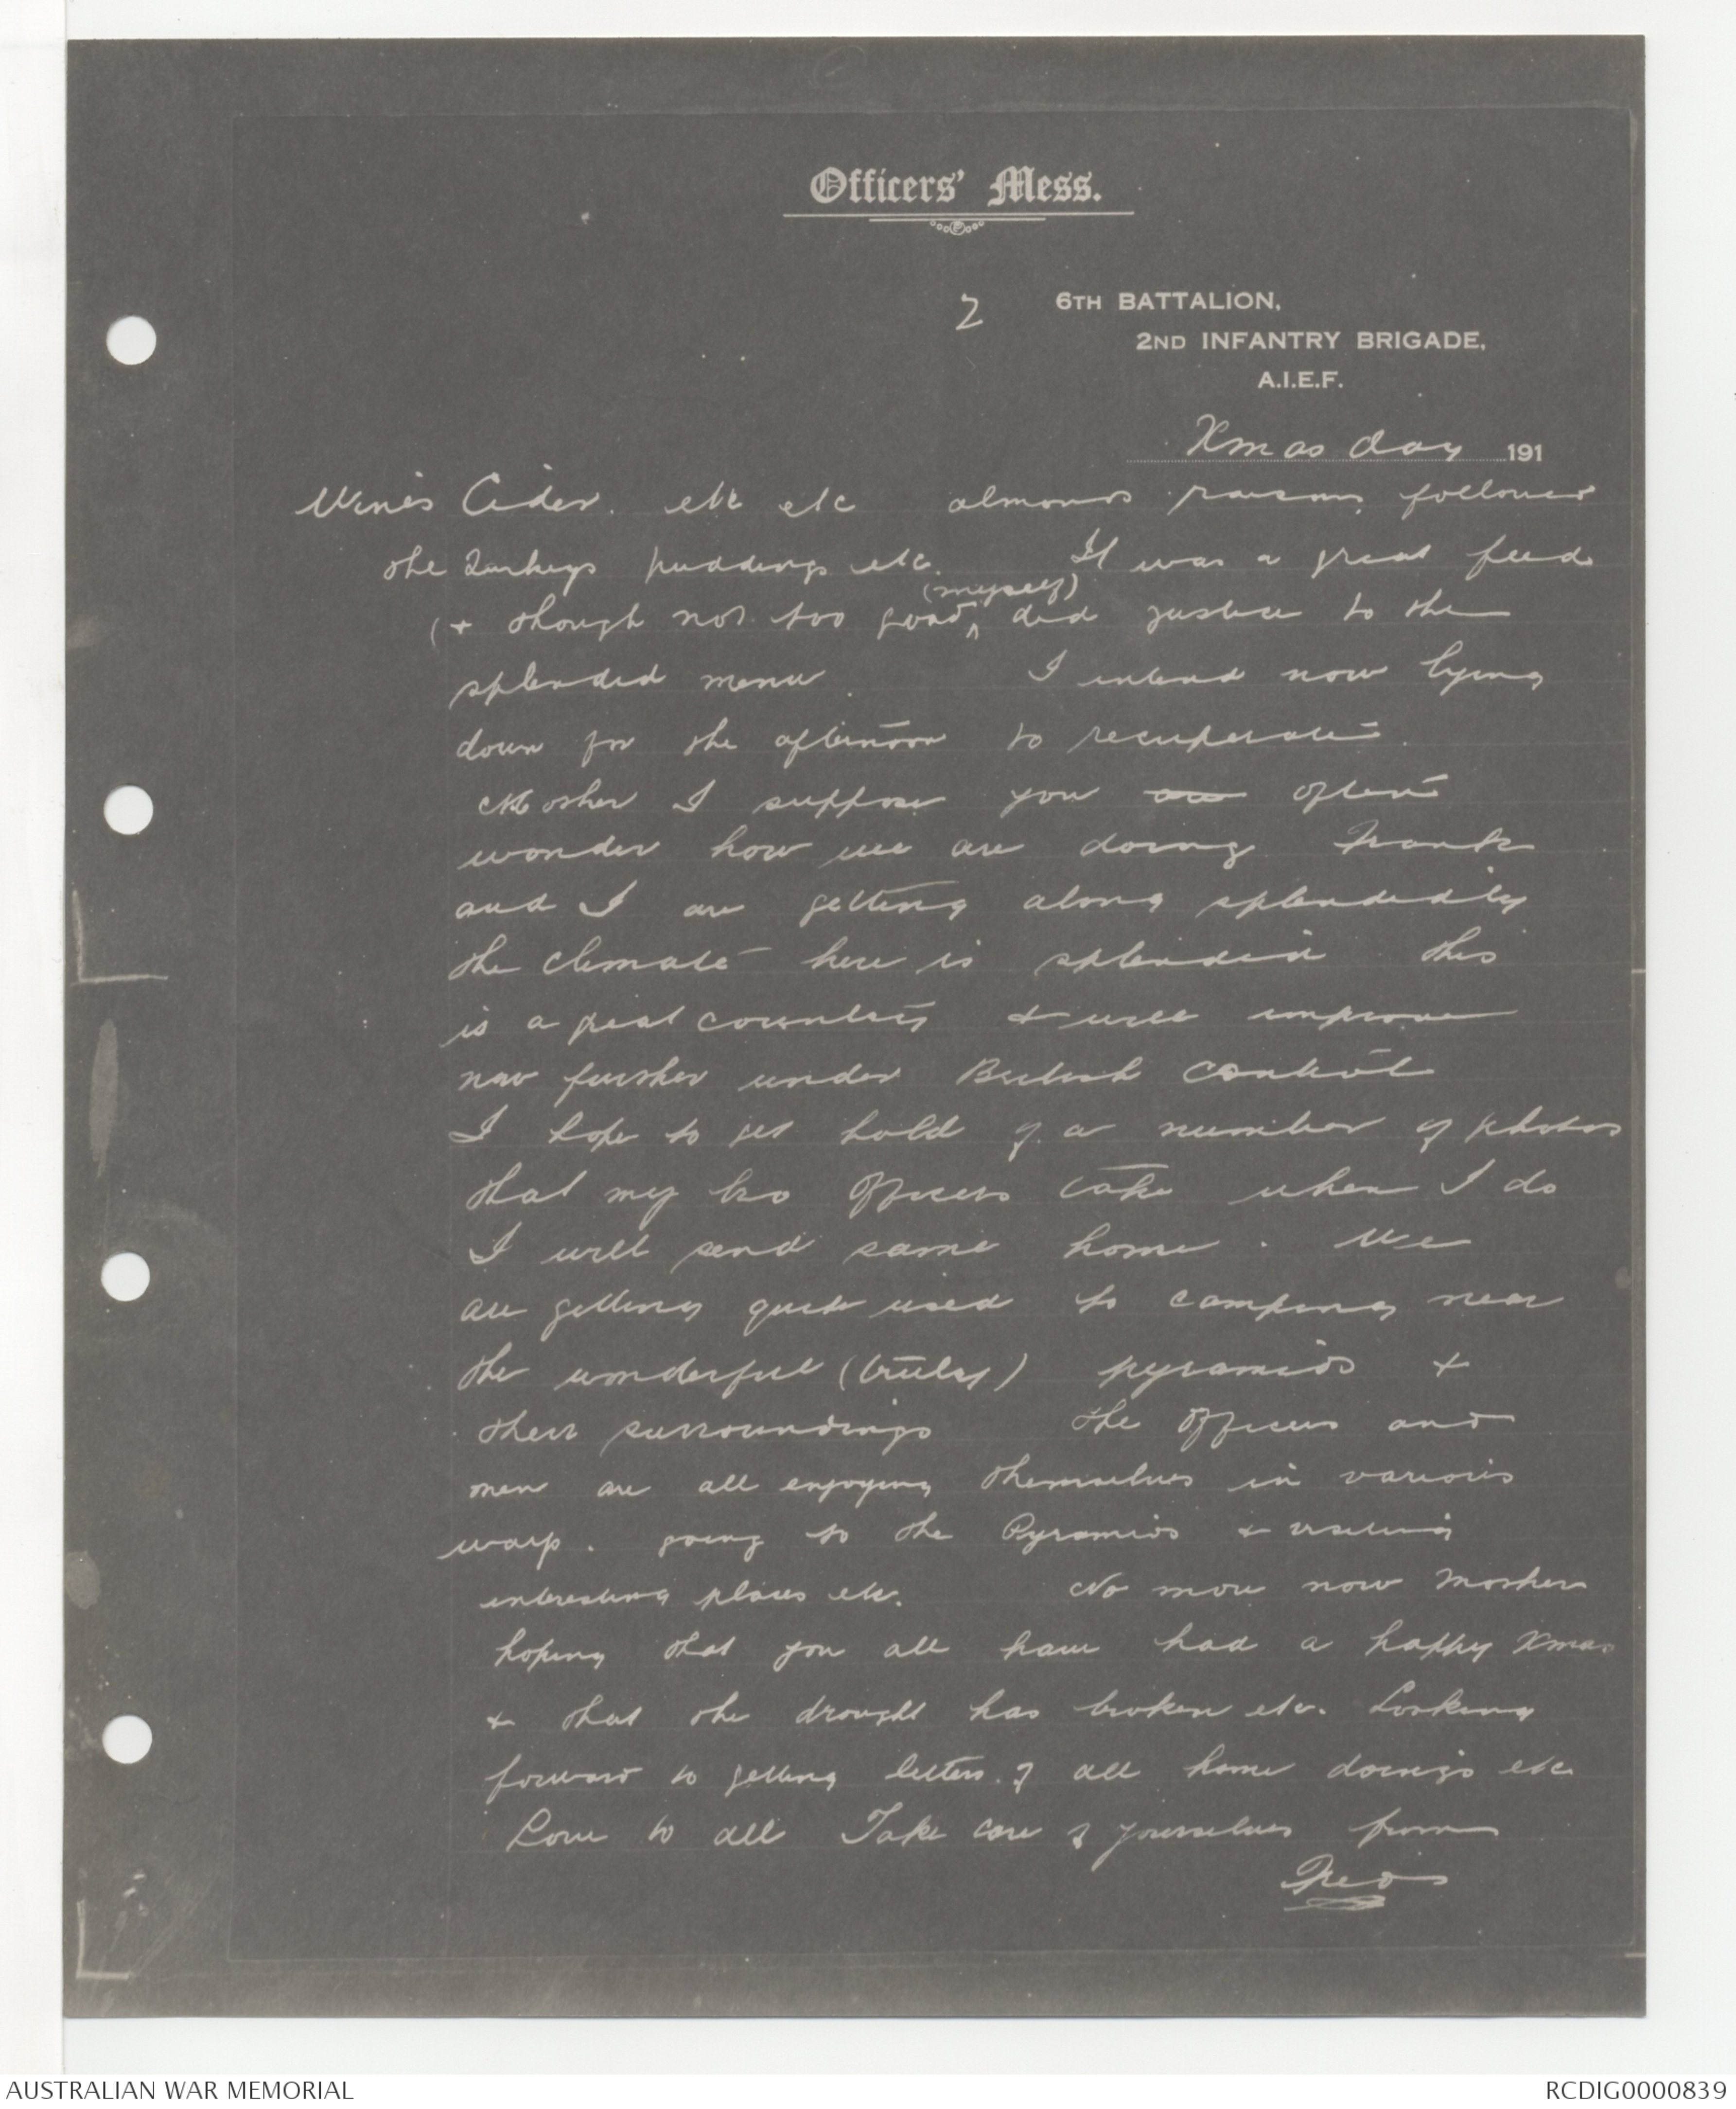 Officers' Mess.
2
6TH BATTALION,
2ND INFANTRY BRIGADE,
A.I.E.F.
Xmas day 191
Wines Cider. etc etc almonds raisins followed
the Turkeys puddings etc. It was a great feed
(myself)
(& though not too good ^ did justice to the
splendid menu. I intend now lying
down for the afternoon to recuperate.
Mother I suppose you are often
wonder how we are doing. Frank
and I are getting along splendidly
the climate here is splendid this
is a great country & will improve
now further under British control
I hope to get hold of a number of photos
that my bro Officers take when I do
I will send same home. We
are getting quite used to camping near
the wonderful (truly) pyramids &
their surroundings the Officers and
men are all enjoying themselves in various
ways. going to the Pyramids & visiting
interesting places etc. No more now Mother
hoping that you all have had a happy Xmas
& that the drought has broken etc. Looking
forward to getting letters of all home doings etc
Love to all Take care of yourselves from
Fred
AUSTRALIAN WAR MEMORIAL
RCDIG0000839